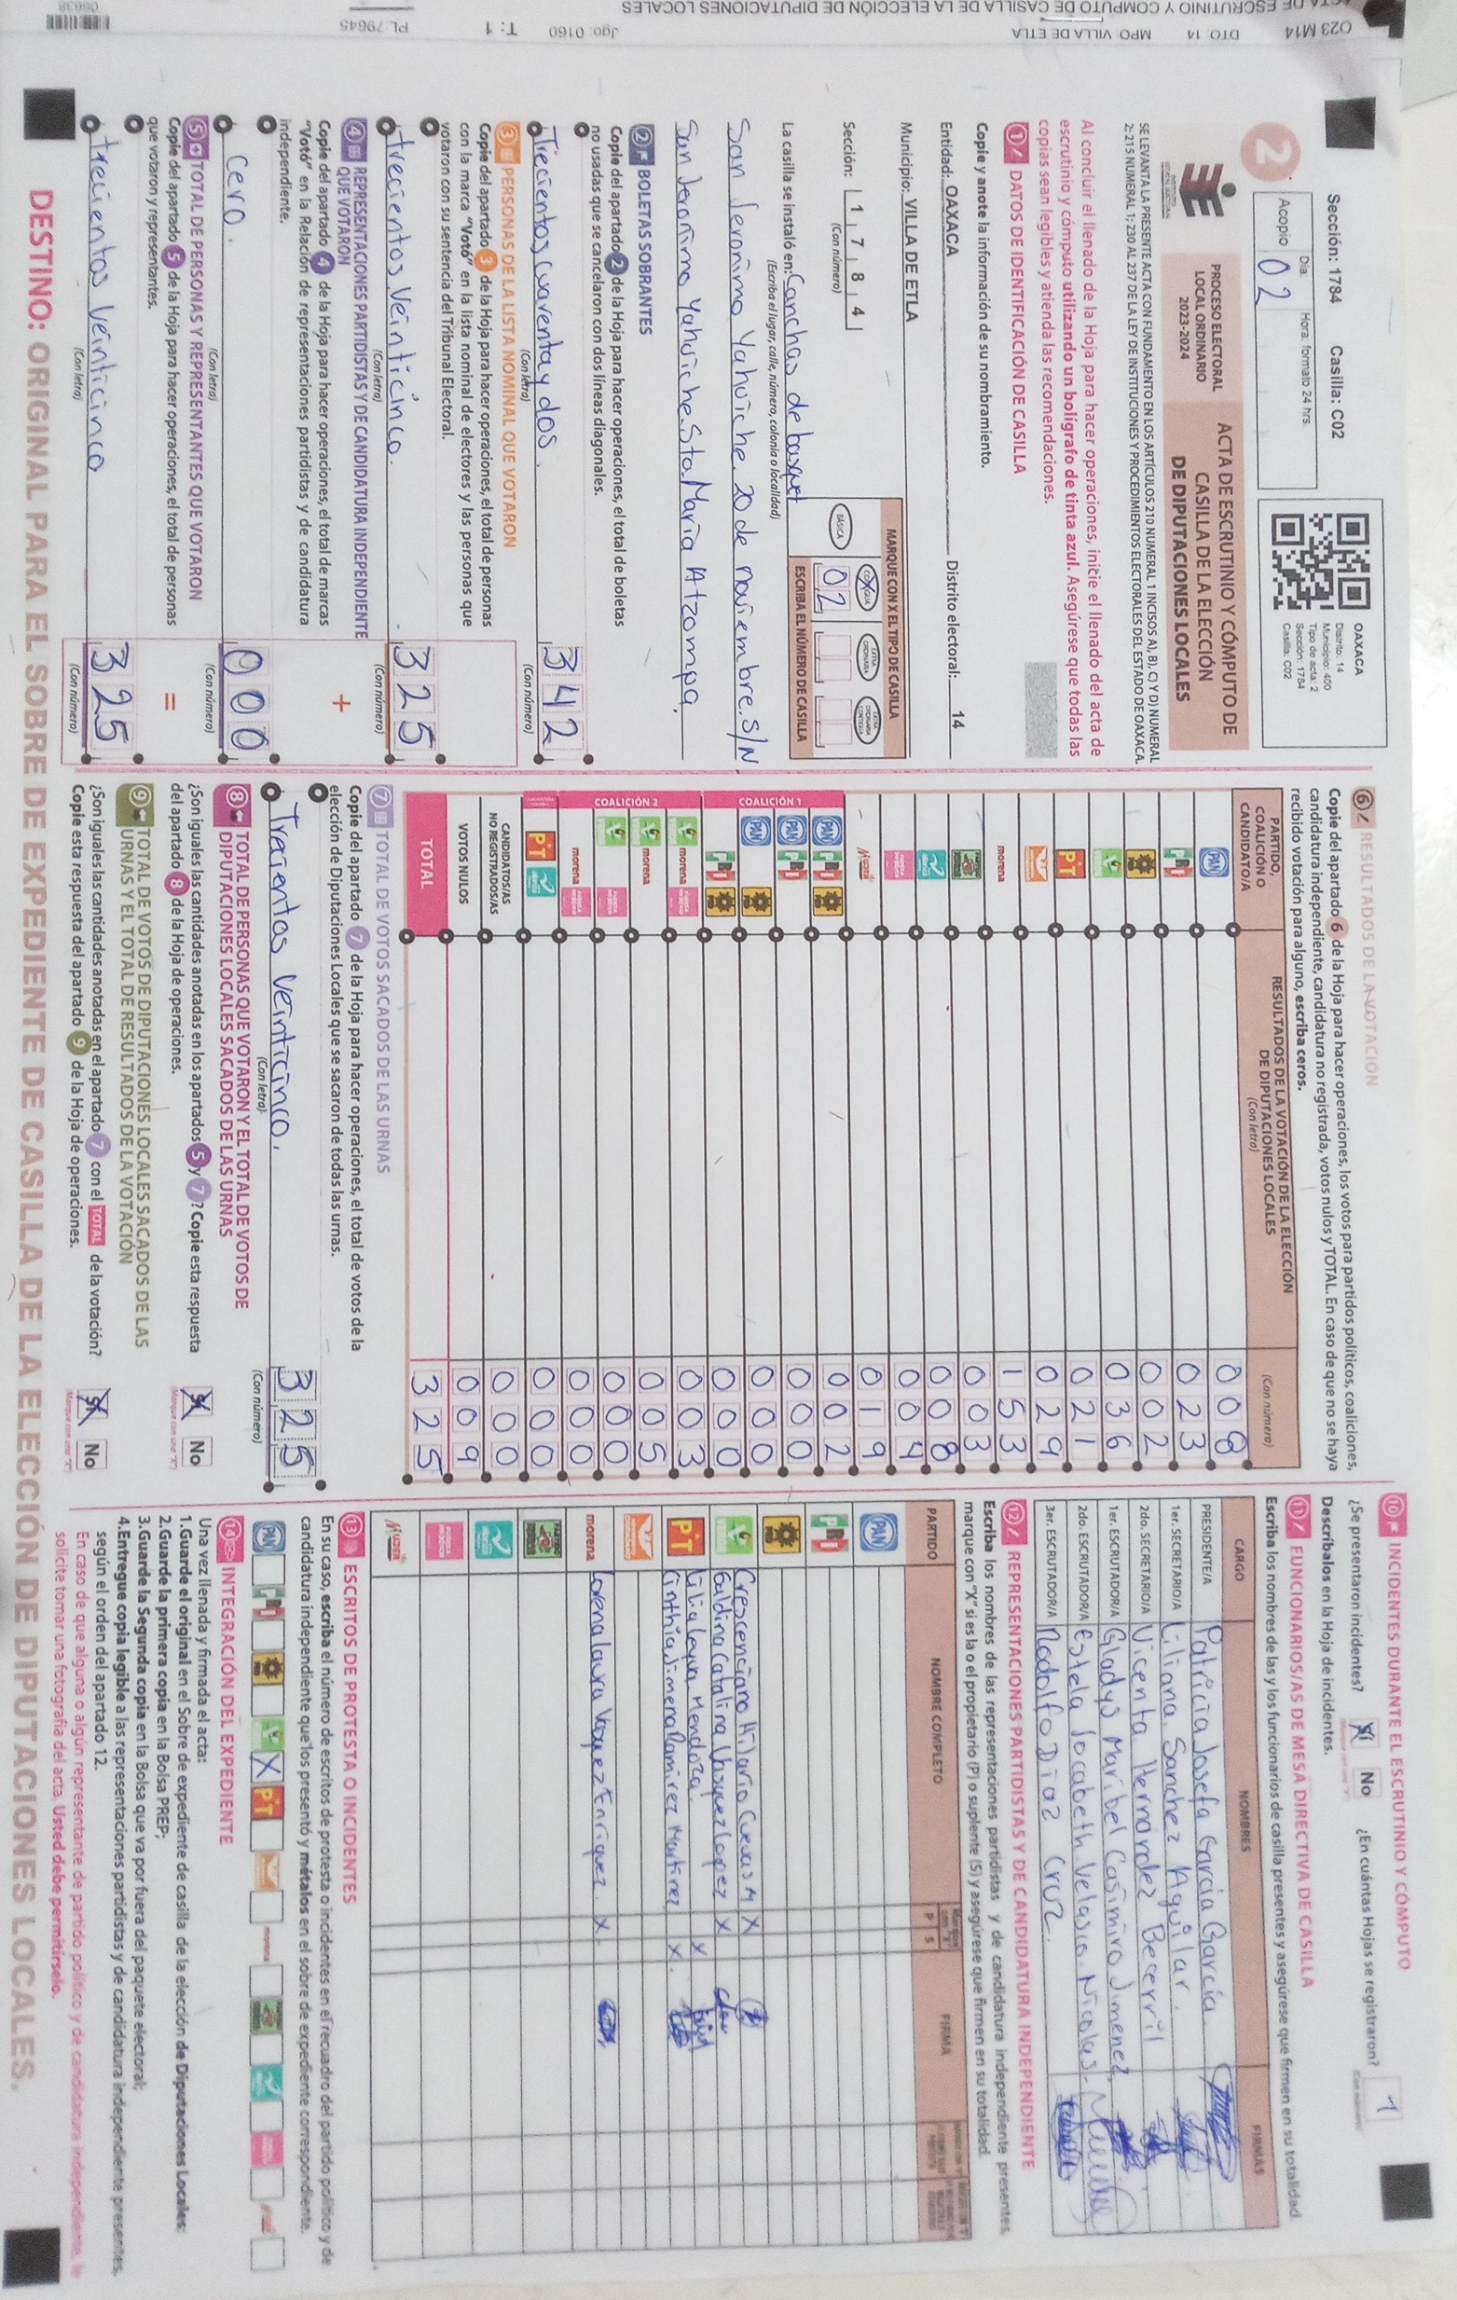 ACTA DE ESCRUTINIO Y COMPUTO DE CASILLA DE LA ELECCIÓN DE DIPUTACIONES LOCALES
O23 M14 DTO 14 MPO VILLA DE ETLA Jgo: 0160 T: 1 PL: 79645
08638
Sección: 1784 Casilla: C02
Día: Hora: formato 24 hrs.
Acopio 02
OAXACA
Distrito: 14
Municipio: 400
Tipo de acta: 2
Sección: 1784
Casilla: C02
2
PROCESO ELECTORAL
LOCAL ORDINARIO
2023-2024
ACTA DE ESCRUTINIO Y CÓMPUTO DE
CASILLA DE LA ELECCIÓN
DE DIPUTACIONES LOCALES
SE LEVANTA LA PRESENTE ACTA CON FUNDAMENTO EN LOS ARTÍCULOS 210 NUMERAL 1 INCISOS A), B), C) Y D) NUMERAL
2; 215 NUMERAL 1; 230 AL 237 DE LA LEY DE INSTITUCIONES Y PROCEDIMIENTOS ELECTORALES DEL ESTADO DE OAXACA.
Al concluir el llenado de la Hoja para hacer operaciones, inicie el llenado del acta de
escrutinio y cómputo utilizando un bolígrafo de tinta azul. Asegúrese que todas las
copias sean legibles y atienda las recomendaciones.
1 DATOS DE IDENTIFICACIÓN DE CASILLA
Copie y anote la información de su nombramiento.
Entidad: OAXACA Distrito electoral: 14
Municipio: VILLA DE ETLA
Sección: 1 7 8 4
(Con número)
MARQUE CON X EL TIPO DE CASILLA
BÁSICA
02
ESCRIBA EL NÚMERO DE CASILLA
La casilla se instaló en: Canchas de basquet
(Escriba el lugar, calle, número, colonia o localidad)
San Jeronimo Yahuiche. 20 de noviembre. S/N
San Jeronimo Yahuiche. Sta. Maria Atzompa.
2 BOLETAS SOBRANTES
Copie del apartado 2 de la Hoja para hacer operaciones, el total de boletas
no usadas que se cancelaron con dos líneas diagonales.
Trecientos cuarenta y dos. 342
(Con letra) (Con número)
3 PERSONAS DE LA LISTA NOMINAL QUE VOTARON
Copie del apartado 3 de la Hoja para hacer operaciones, el total de personas
con la marca "Votó" en la lista nominal de electores y las personas que
votaron con su sentencia del Tribunal Electoral.
trecientos veinticinco. 325
(Con letra) (Con número)
4 REPRESENTACIONES PARTIDISTAS Y DE CANDIDATURA INDEPENDIENTE
QUE VOTARON
Copie del apartado 4 de la Hoja para hacer operaciones, el total de marcas
"Votó" en la Relación de representaciones partidistas y de candidatura
independiente.
+
cero. 000
(Con letra) (Con número)
5 TOTAL DE PERSONAS Y REPRESENTANTES QUE VOTARON
Copie del apartado 5 de la Hoja para hacer operaciones, el total de personas
que votaron y representantes.
=
trecientos veinticinco 325
(Con letra) (Con número)
6 RESULTADOS DE LA VOTACIÓN
Copie del apartado 6 de la Hoja para hacer operaciones, los votos para partidos políticos, coaliciones,
candidatura independiente, candidatura no registrada, votos nulos y TOTAL. En caso de que no se haya
recibido votación para alguno, escriba ceros.
PARTIDO,
COALICIÓN O
CANDIDATO/A
RESULTADOS DE LA VOTACIÓN DE LA ELECCIÓN
DE DIPUTACIONES LOCALES
(Con letra)
(Con número)
PAN 008
PRI 023
PRD 002
036
PT 021
029
morena 153
003
008
004
019
COALICIÓN 1
PAN PRI PRD 002
PAN PRI 000
PAN PRD 000
PRI PRD 000
COALICIÓN 2
morena 003
morena 005
000
morena 000
PT 000
CANDIDATOS/AS
NO REGISTRADOS/AS 000
VOTOS NULOS 009
TOTAL 325
7 TOTAL DE VOTOS SACADOS DE LAS URNAS
Copie del apartado 7 de la Hoja para hacer operaciones, el total de votos de la
elección de Diputaciones Locales que se sacaron de todas las urnas.
Trecientos veinticinco. 325
(Con letra) (Con número)
8 TOTAL DE PERSONAS QUE VOTARON Y EL TOTAL DE VOTOS DE
DIPUTACIONES LOCALES SACADOS DE LAS URNAS
¿Son iguales las cantidades anotadas en los apartados 5 y 7? Copie esta respuesta
del apartado 8 de la Hoja de operaciones.
Sí No
9 TOTAL DE VOTOS DE DIPUTACIONES LOCALES SACADOS DE LAS
URNAS Y EL TOTAL DE RESULTADOS DE LA VOTACIÓN
¿Son iguales las cantidades anotadas en el apartado 7 con el TOTAL de la votación?
Copie esta respuesta del apartado 9 de la Hoja de operaciones.
Sí No
10 INCIDENTES DURANTE EL ESCRUTINIO Y CÓMPUTO
¿Se presentaron incidentes? Sí No ¿En cuántas Hojas se registraron? 1
Descríbalos en la Hoja de incidentes.
11 FUNCIONARIOS/AS DE MESA DIRECTIVA DE CASILLA
Escriba los nombres de las y los funcionarios de casilla presentes y asegúrese que firmen en su totalidad.
CARGO NOMBRES FIRMAS
PRESIDENTE/A Patricia Josefa Garcia Garcia
1er. SECRETARIO/A Liliana Sanchez Aguilar.
2do. SECRETARIO/A Vicenta Hernandez Becerril
1er. ESCRUTADOR/A Gladys Maribel Casimiro Jimenez
2do. ESCRUTADOR/A Estela Jocabeth Velasco Nicolas
3er. ESCRUTADOR/A Rodolfo Diaz Cruz.
12 REPRESENTACIONES PARTIDISTAS Y DE CANDIDATURA INDEPENDIENTE
Escriba los nombres de las representaciones partidistas y de candidatura independiente presentes,
marque con "X" si es la o el propietario (P) o suplente (S) y asegúrese que firmen en su totalidad.
PARTIDO NOMBRE COMPLETO P S FIRMA
PAN
PRI
PRD
Crescenciano Hilario Cuevas M X
Galdina Catalina Vasquez Lopez X
PT Lilia Leyva Mendoza. X
Cinthia Jimena Ramirez Martinez X
morena Lorena Laura Vasquez Enriquez. X
13 ESCRITOS DE PROTESTA O INCIDENTES
En su caso, escriba el número de escritos de protesta o incidentes en el recuadro del partido político y de
candidatura independiente que los presentó y métalos en el sobre de expediente correspondiente.
PAN PRI PRD X PT morena
14 INTEGRACIÓN DEL EXPEDIENTE
Una vez llenada y firmada el acta:
1.Guarde el original en el Sobre de expediente de casilla de la elección de Diputaciones Locales;
2.Guarde la primera copia en la Bolsa PREP;
3.Guarde la Segunda copia en la Bolsa que va por fuera del paquete electoral;
4.Entregue copia legible a las representaciones partidistas y de candidatura independiente presentes,
según el orden del apartado 12.
En caso de que alguna o algún representante de partido político y de candidatura independiente, le
solicite tomar una fotografía del acta, Usted debe permitírselo.
DESTINO: ORIGINAL PARA EL SOBRE DE EXPEDIENTE DE CASILLA DE LA ELECCIÓN DE DIPUTACIONES LOCALES.